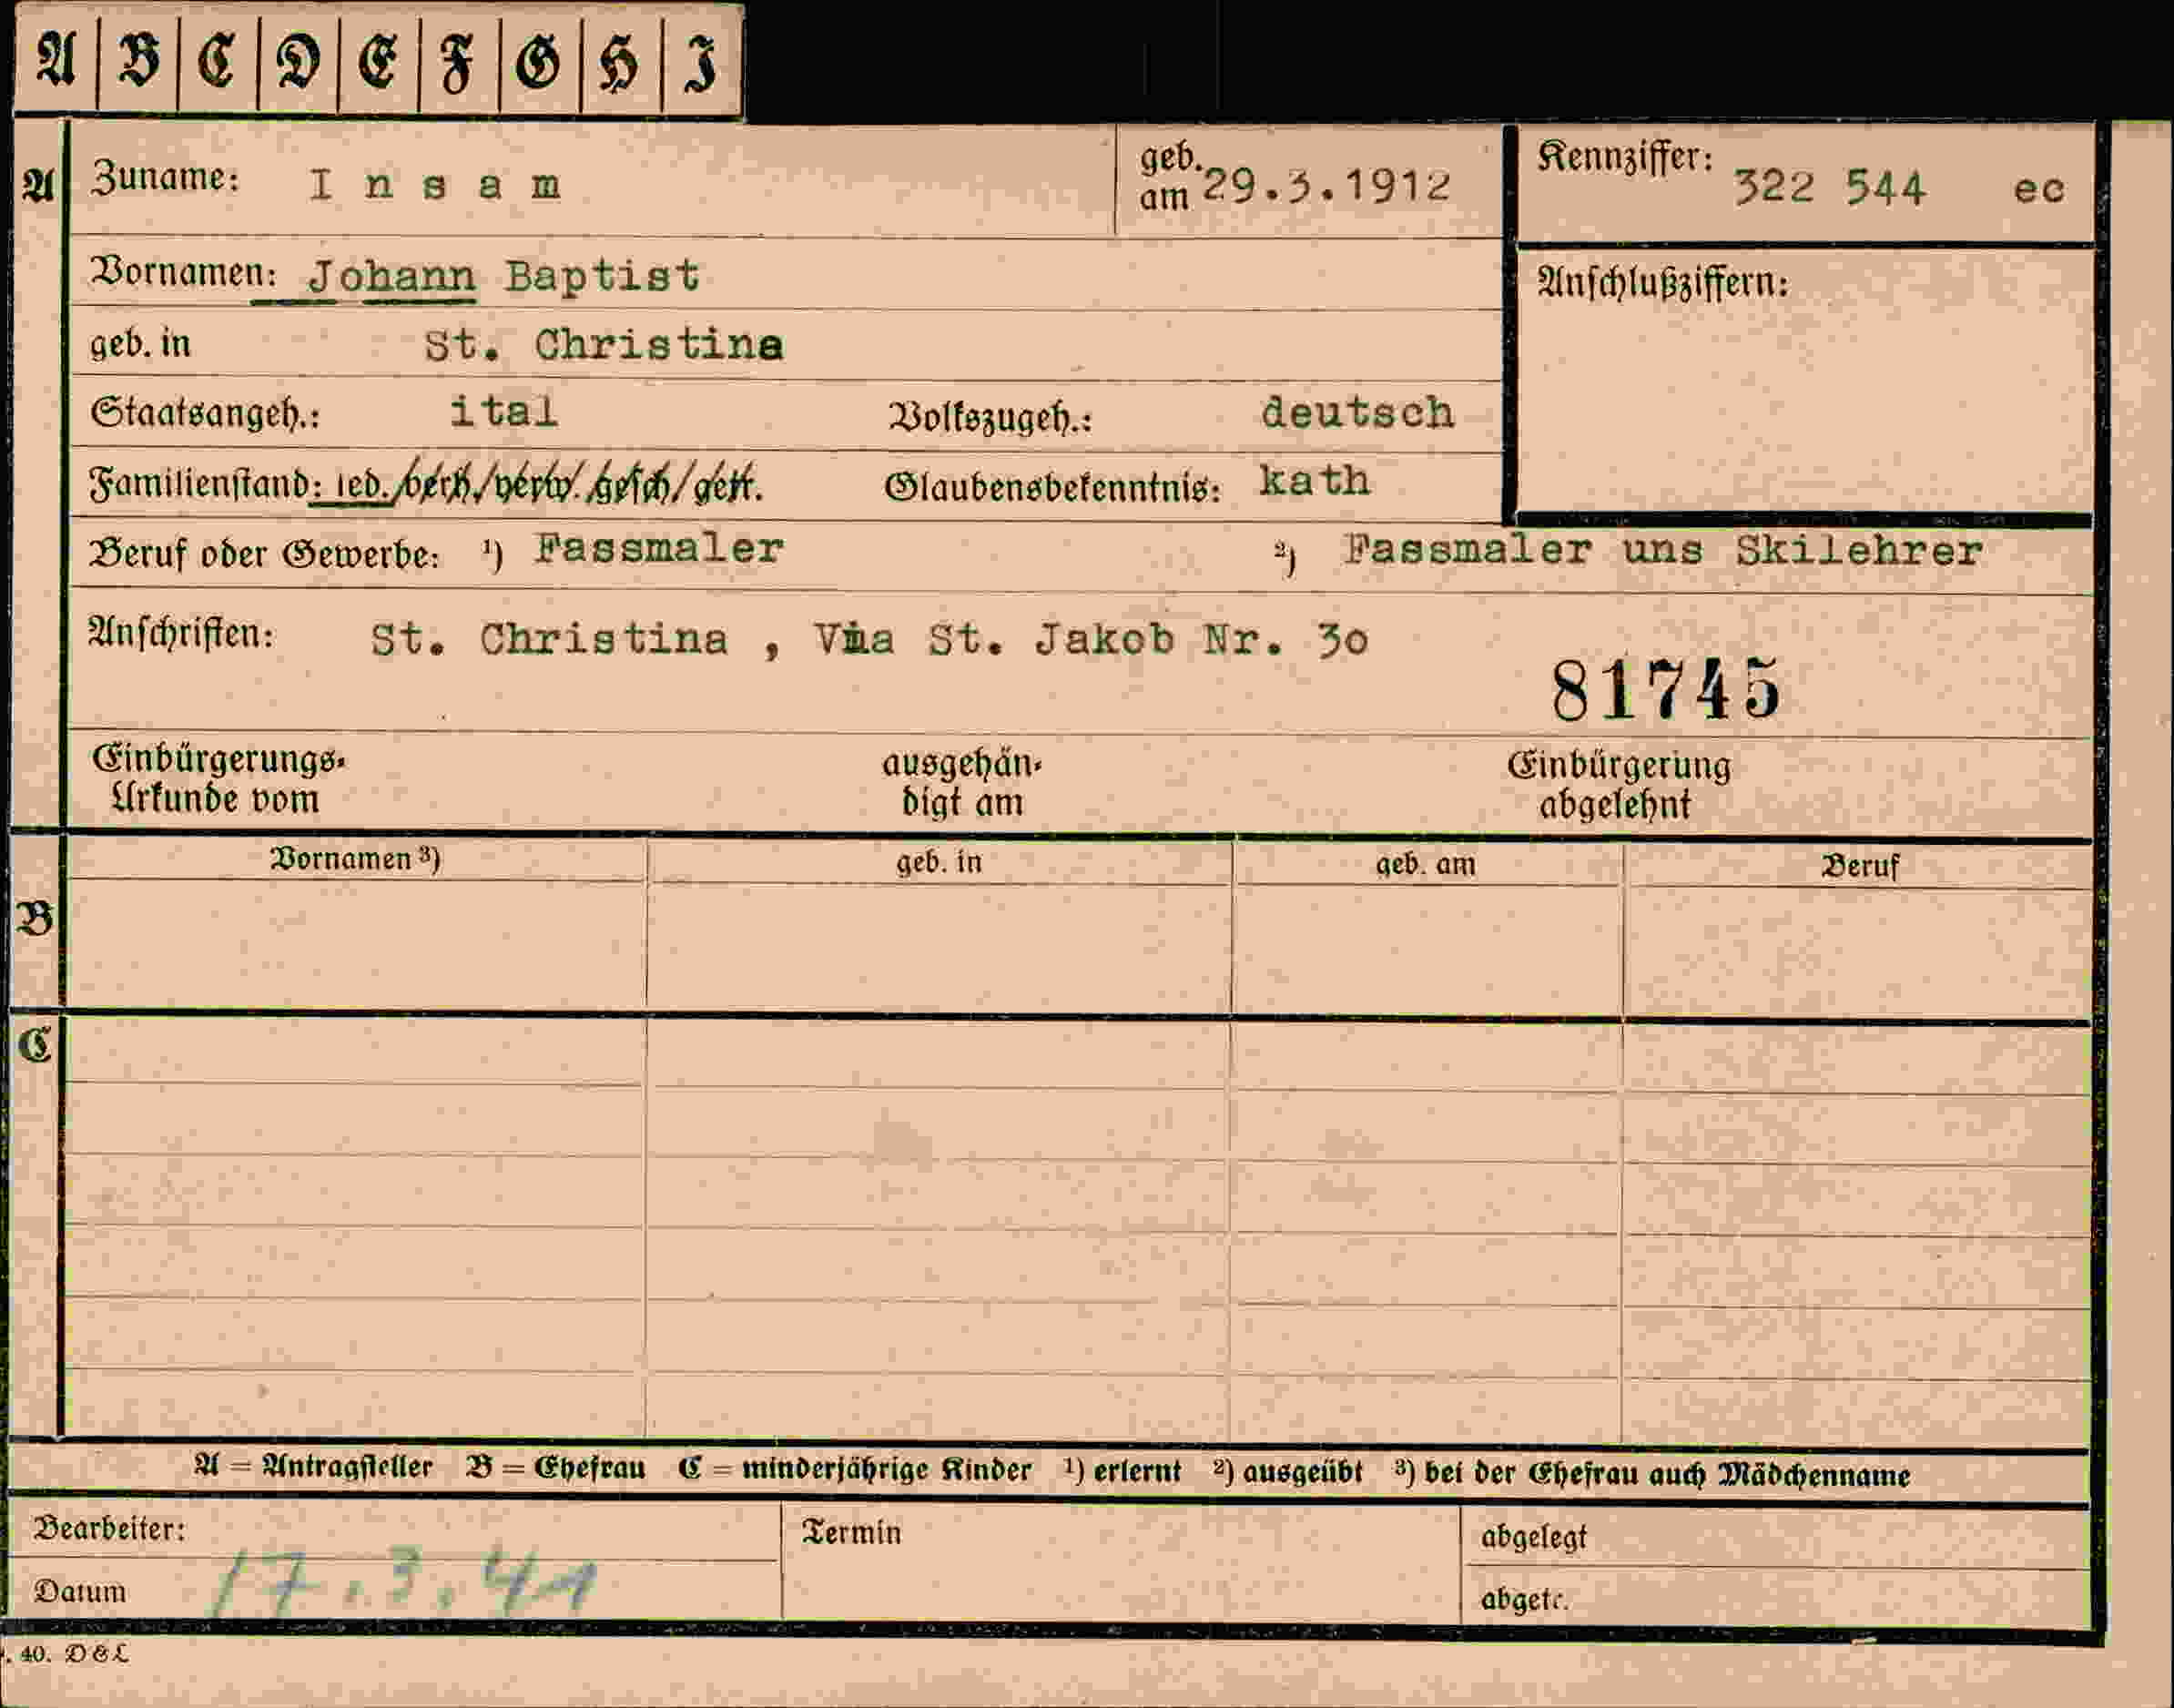 A B C D E F G H I
A Zuname: Insam geb. am 29.3.1912 Kennziffer: 322 544 ec
Vornamen: Johann Baptist Anschlußziffern:
geb. in St. Christina
Staatsangeh.: ital Volkszugeh.: deutsch
Familienstand: led./verh./verw./gesch/getr. Glaubensbekenntnis: kath
Beruf oder Gewerbe: ¹) Fassmaler ²) Fassmaler uns Skilehrer
Anschriften: St. Christina , Via St. Jakob Nr. 30
81745
Einbürgerungs- ausgehän- Einbürgerung
Urkunde vom digt am abgelehnt
Vornamen ³) geb. in geb. am Beruf
B
C
A = Antragsteller B = Ehefrau C = minderjährige Kinder ¹) erlernt ²) ausgeübt ³) bei der Ehefrau auch Mädchenname
Bearbeiter: Termin abgelegt
Datum 17.3.41 abgetr.
. 40. D & L